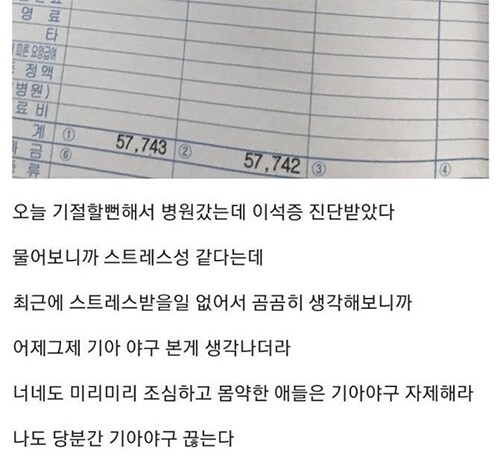 영 료
타
정액
병원)
료비
계 ① 57,743 ② 57,742 ③ ④
금 ⑥
류
오늘 기절할뻔해서 병원갔는데 이석증 진단받았다
물어보니까 스트레스성 같다는데
최근에 스트레스받을일 없어서 곰곰히 생각해보니까
어제그제 기아 야구 본게 생각나더라
너네도 미리미리 조심하고 몸약한 애들은 기아야구 자제해라
나도 당분간 기아야구 끊는다